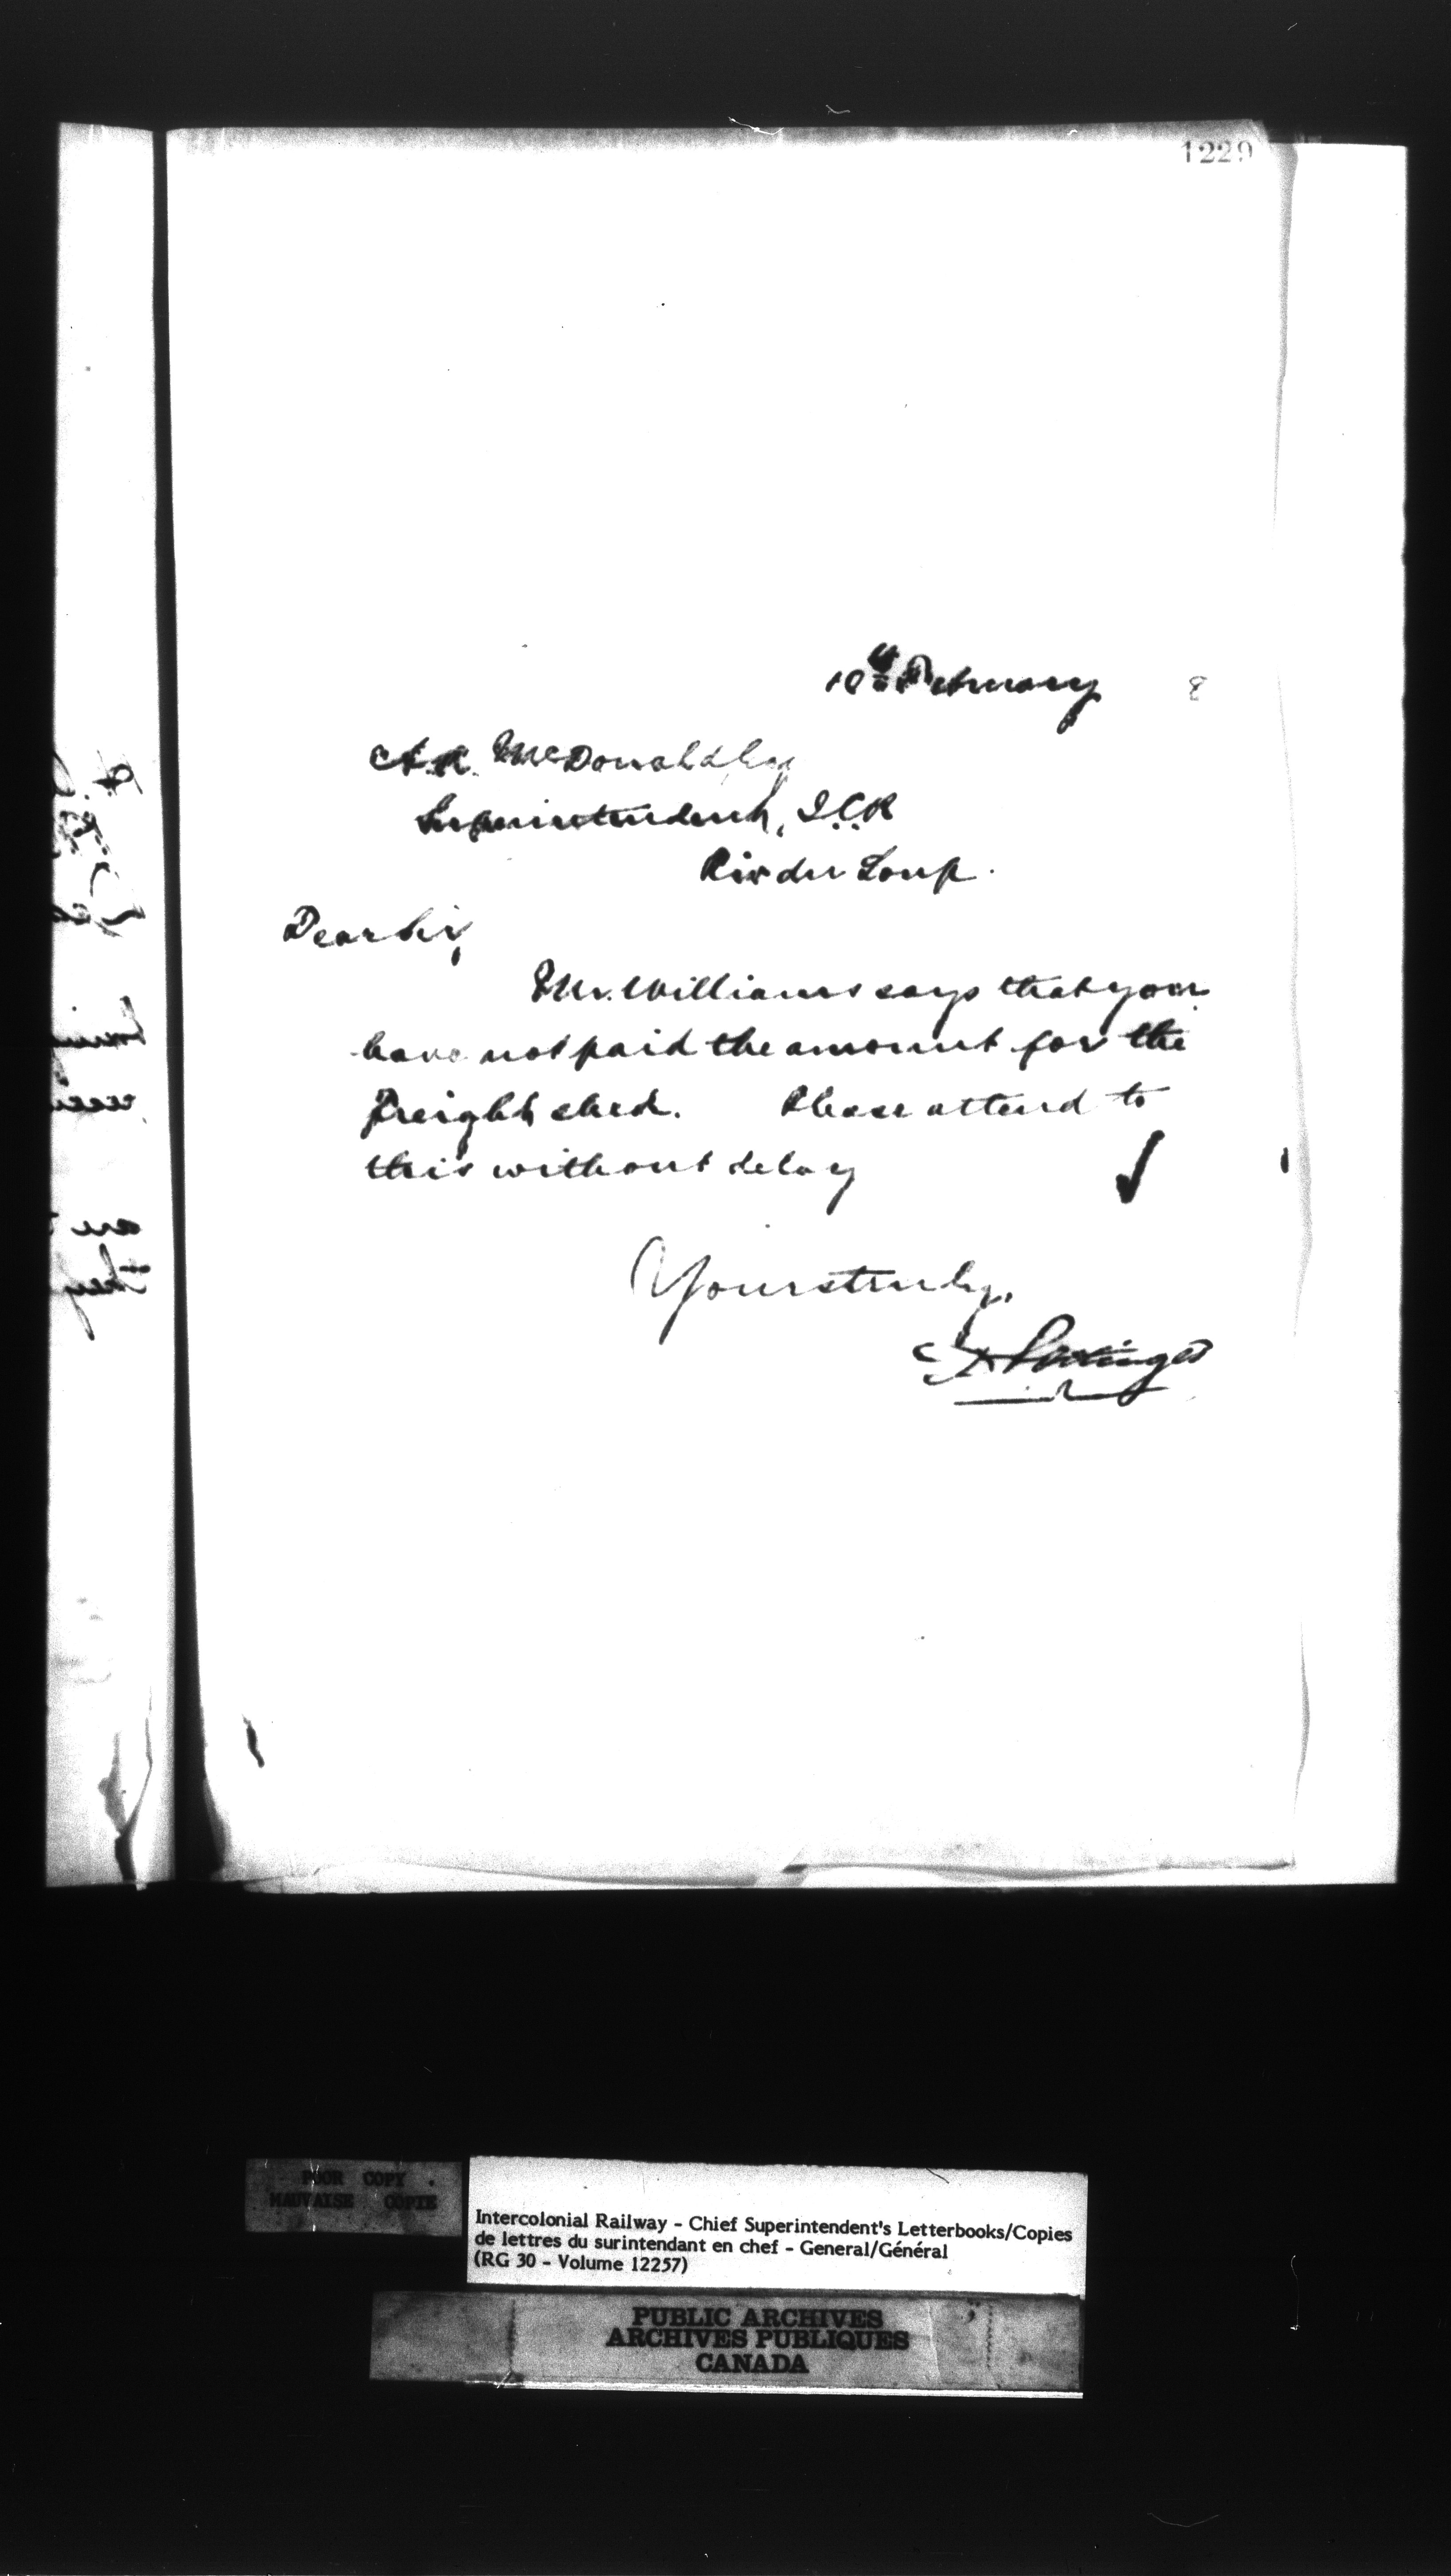 1229
10th February 8
A.R. McDonald Esq
Superintendent, I.C.R
Riv du Loup.
Dear Sir,
Mr. Williams says that you
have not paid the amount for the
freight shed. Please attend to
this without delay
Yours truly,
D Pottinger
POOR COPY
MAUVAISE COPIE
Intercolonial Railway - Chief Superintendent's Letterbooks/Copies
de lettres du surintendant en chef - General/Général
(RG 30 - Volume 12257)
PUBLIC ARCHIVES
ARCHIVES PUBLIQUES
CANADA